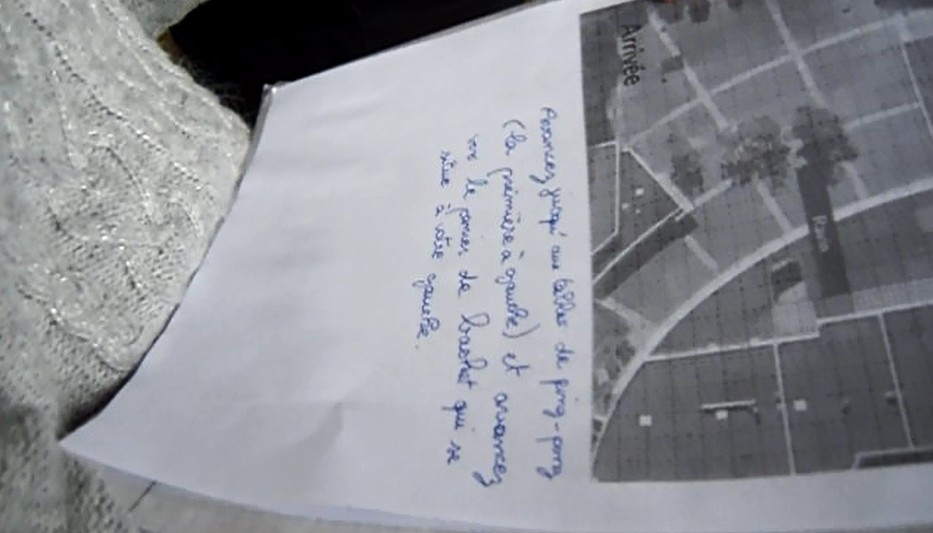 Arrivée
Avancez jusqu'aux tables de ping-pong
(la première à gauche) et avancez
vers le panier de basket qui se
situe à votre gauche.